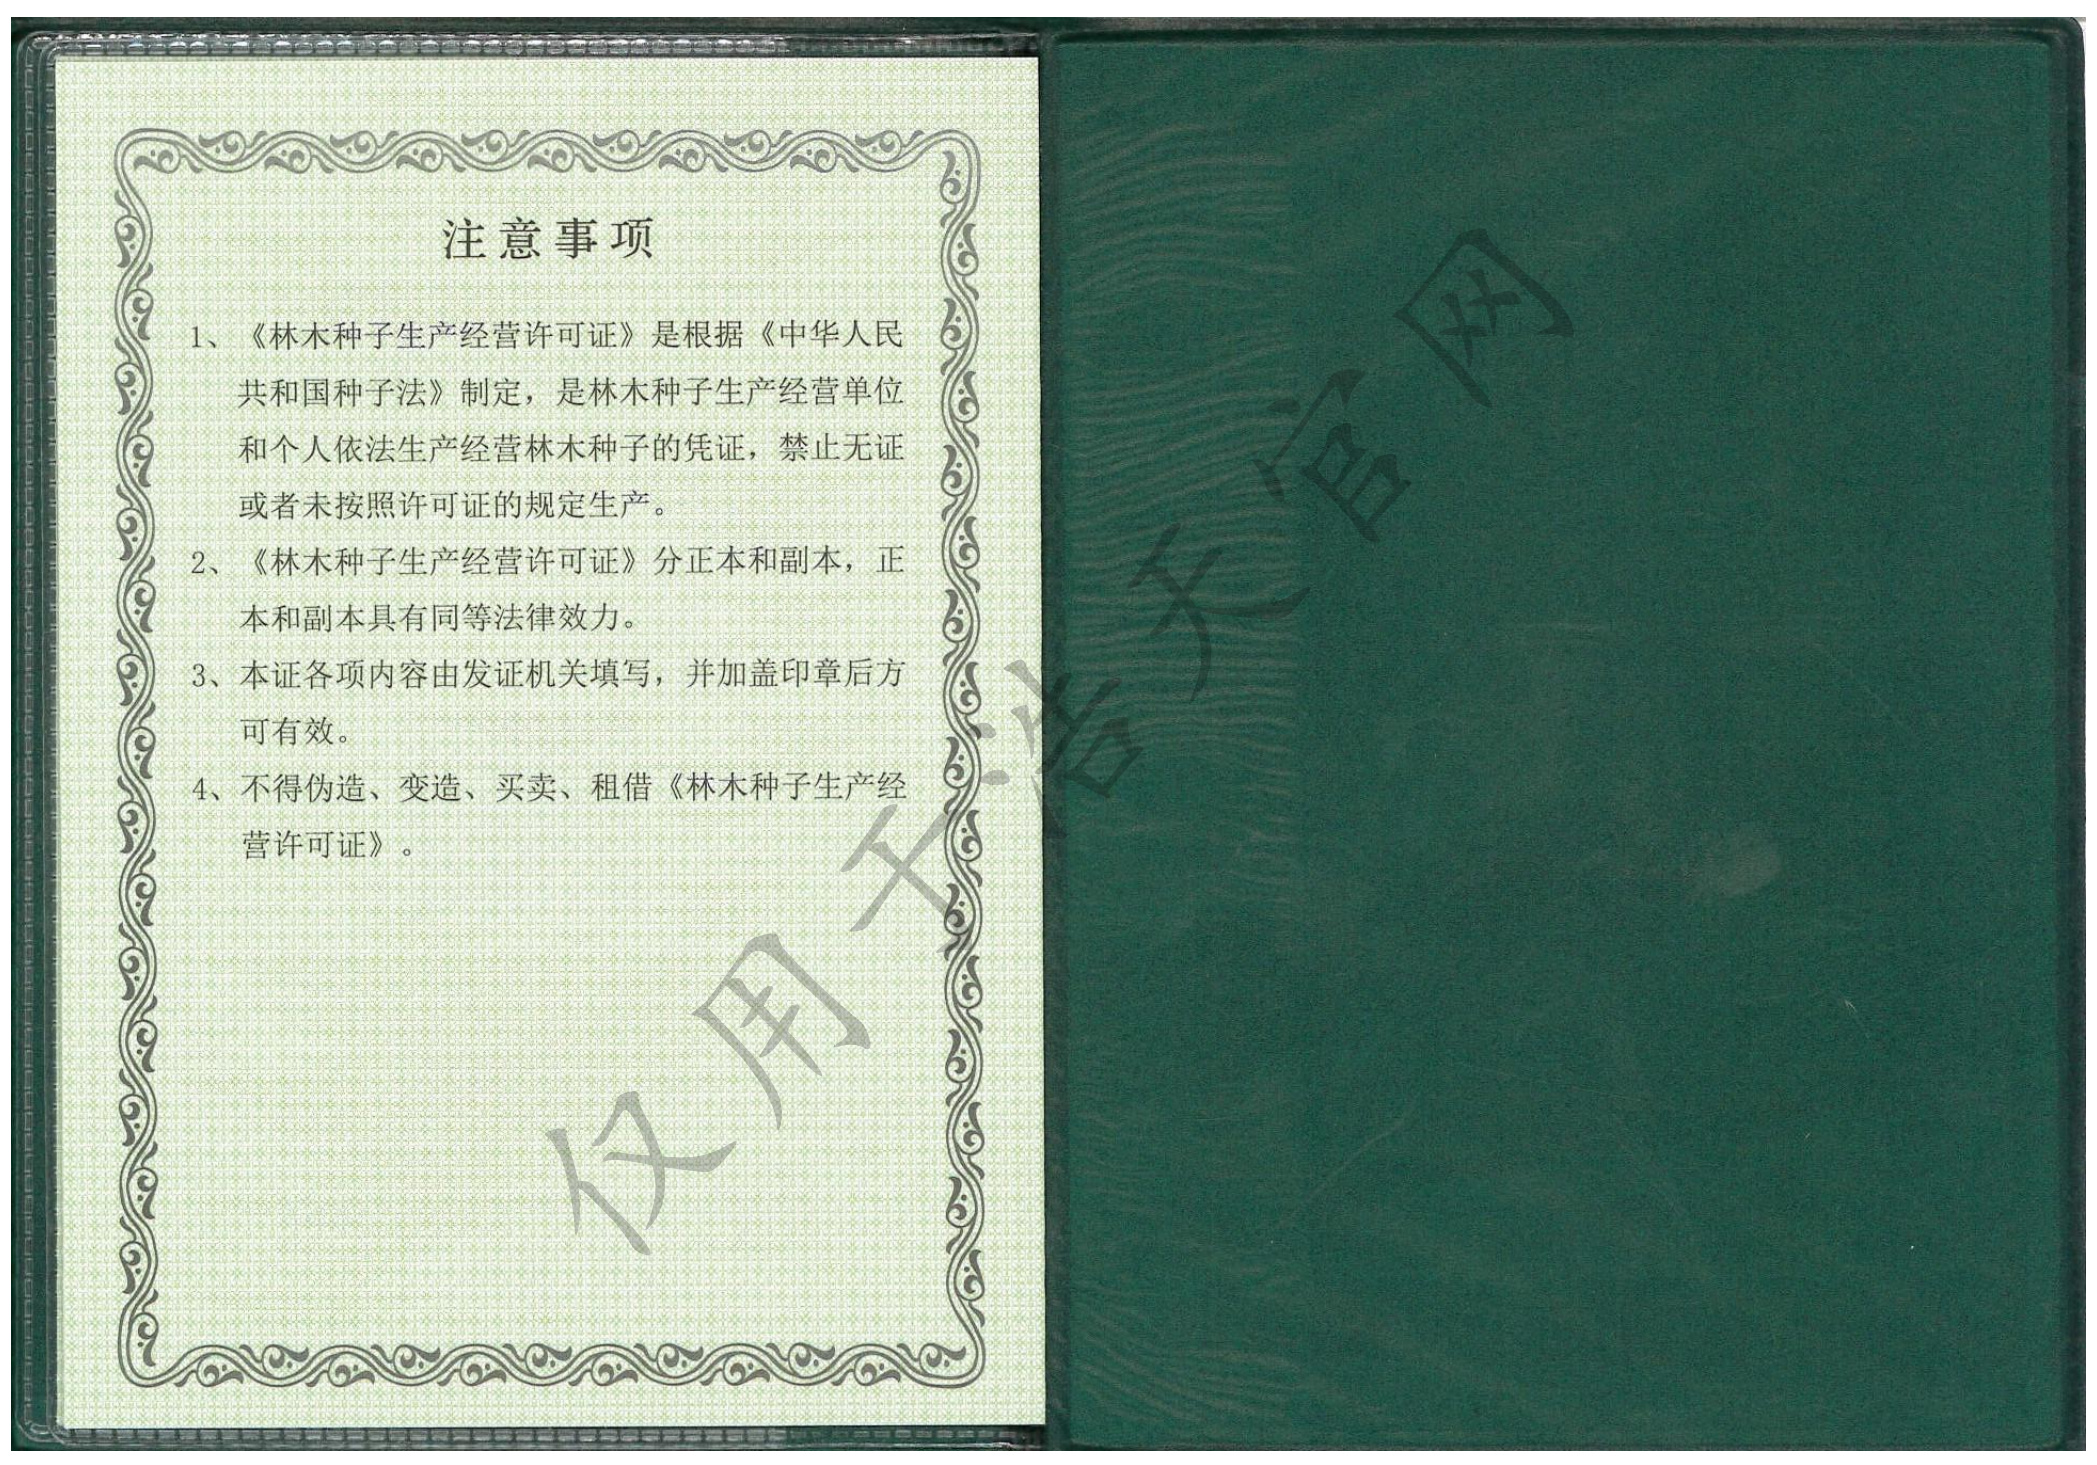 注意事项
1、《林木种子生产经营许可证》是根据《中华人民
共和国种子法》制定，是林木种子生产经营单位
和个人依法生产经营林木种子的凭证，禁止无证
或者未按照许可证的规定生产。
2、《林木种子生产经营许可证》分正本和副本，正
本和副本具有同等法律效力。
3、本证各项内容由发证机关填写，并加盖印章后方
可有效。
4、不得伪造、变造、买卖、租借《林木种子生产经
营许可证》。
仅用于浩天官网